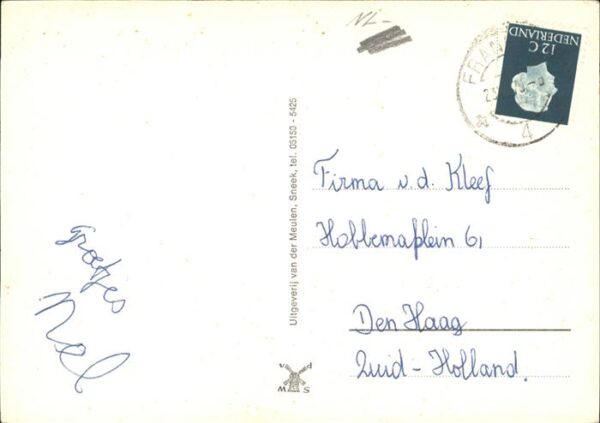 Nl-
NEDERLAND
12 C
FRAN
4
Firma v.d. Kleef
Hobbemaplein 61
Den Haag
Zuid-Holland.
Groetjes
Nel
Uitgeverij van der Meulen, Sneek, tel. 05150 - 5425
v d
W M S